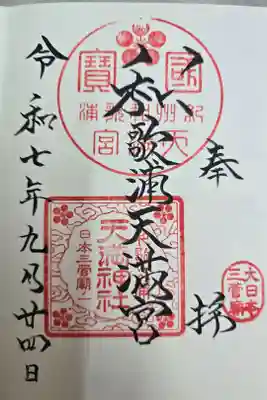 奉拝
大日本
三菅廟
和歌浦天満宮
國寶
紀州和歌浦
天満神社
日本三菅廟
令和七年九月廿四日